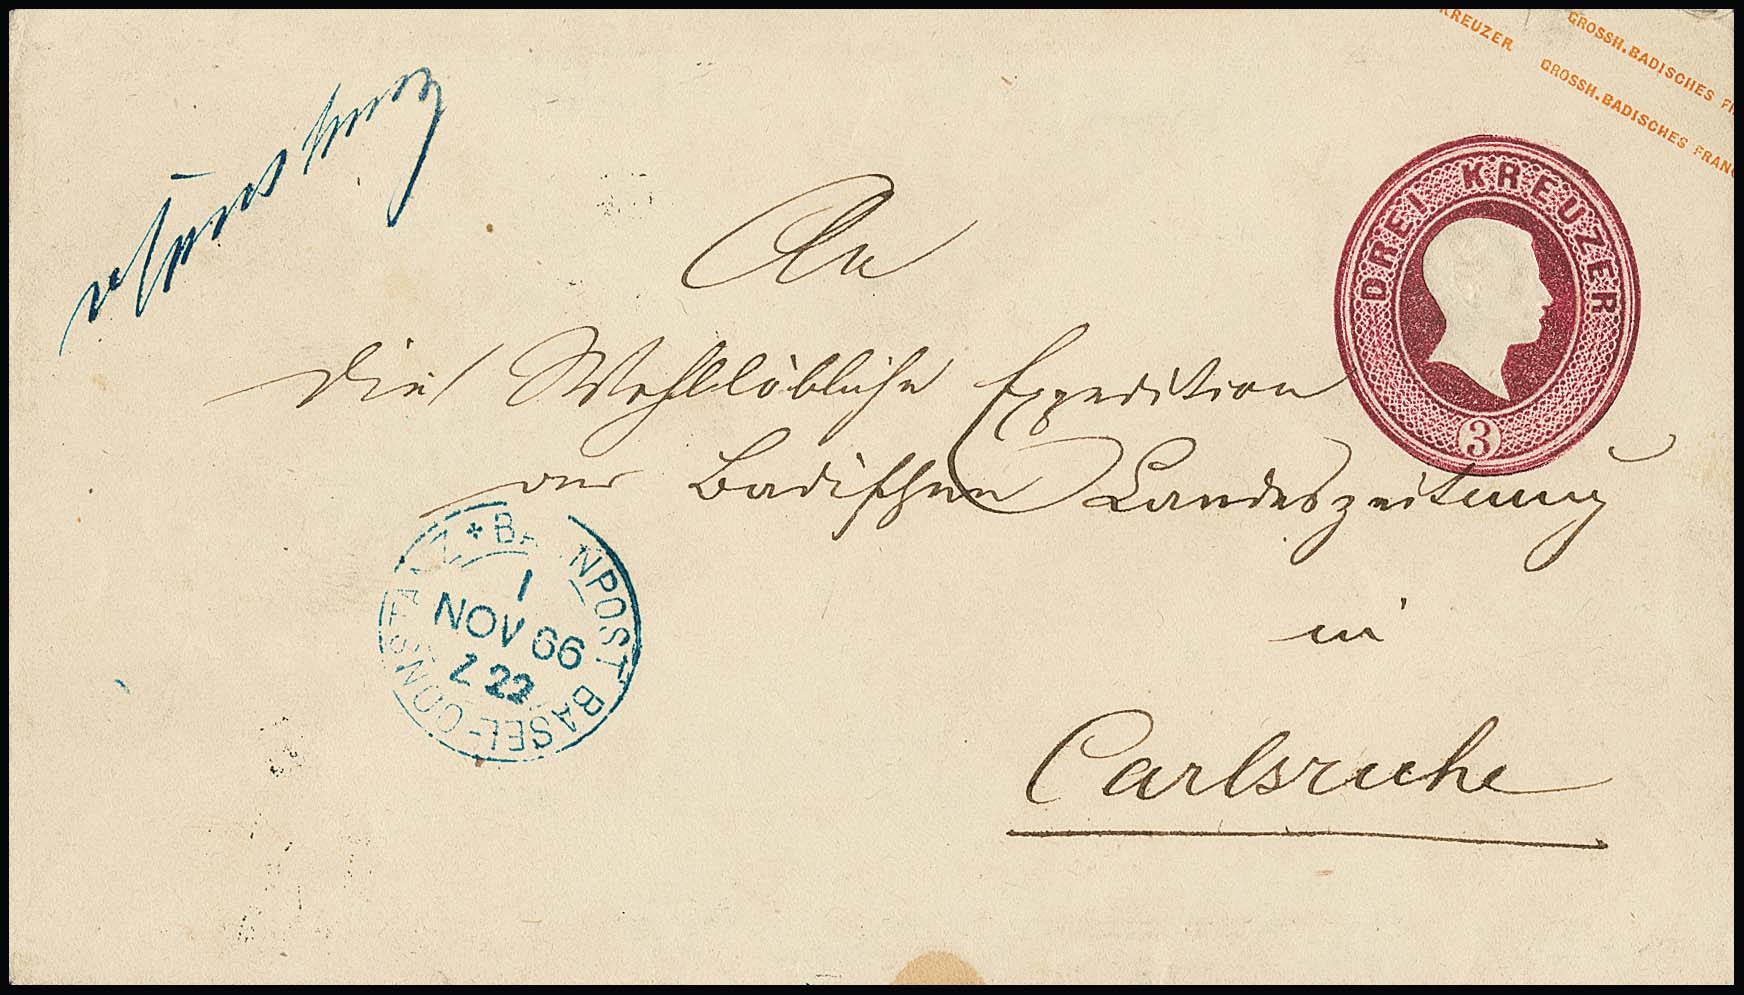 KREUZER GROSSH.BADISCHES F
GROSSH.BADISCHES FRANC
DREI KREUZER
3
An
die Wohllöbliche Expedition
der Badischen Landeszeitung
in
Carlsruhe
* BAHNPOST BASEL-CONSTANZ
1
NOV 66
Z 22